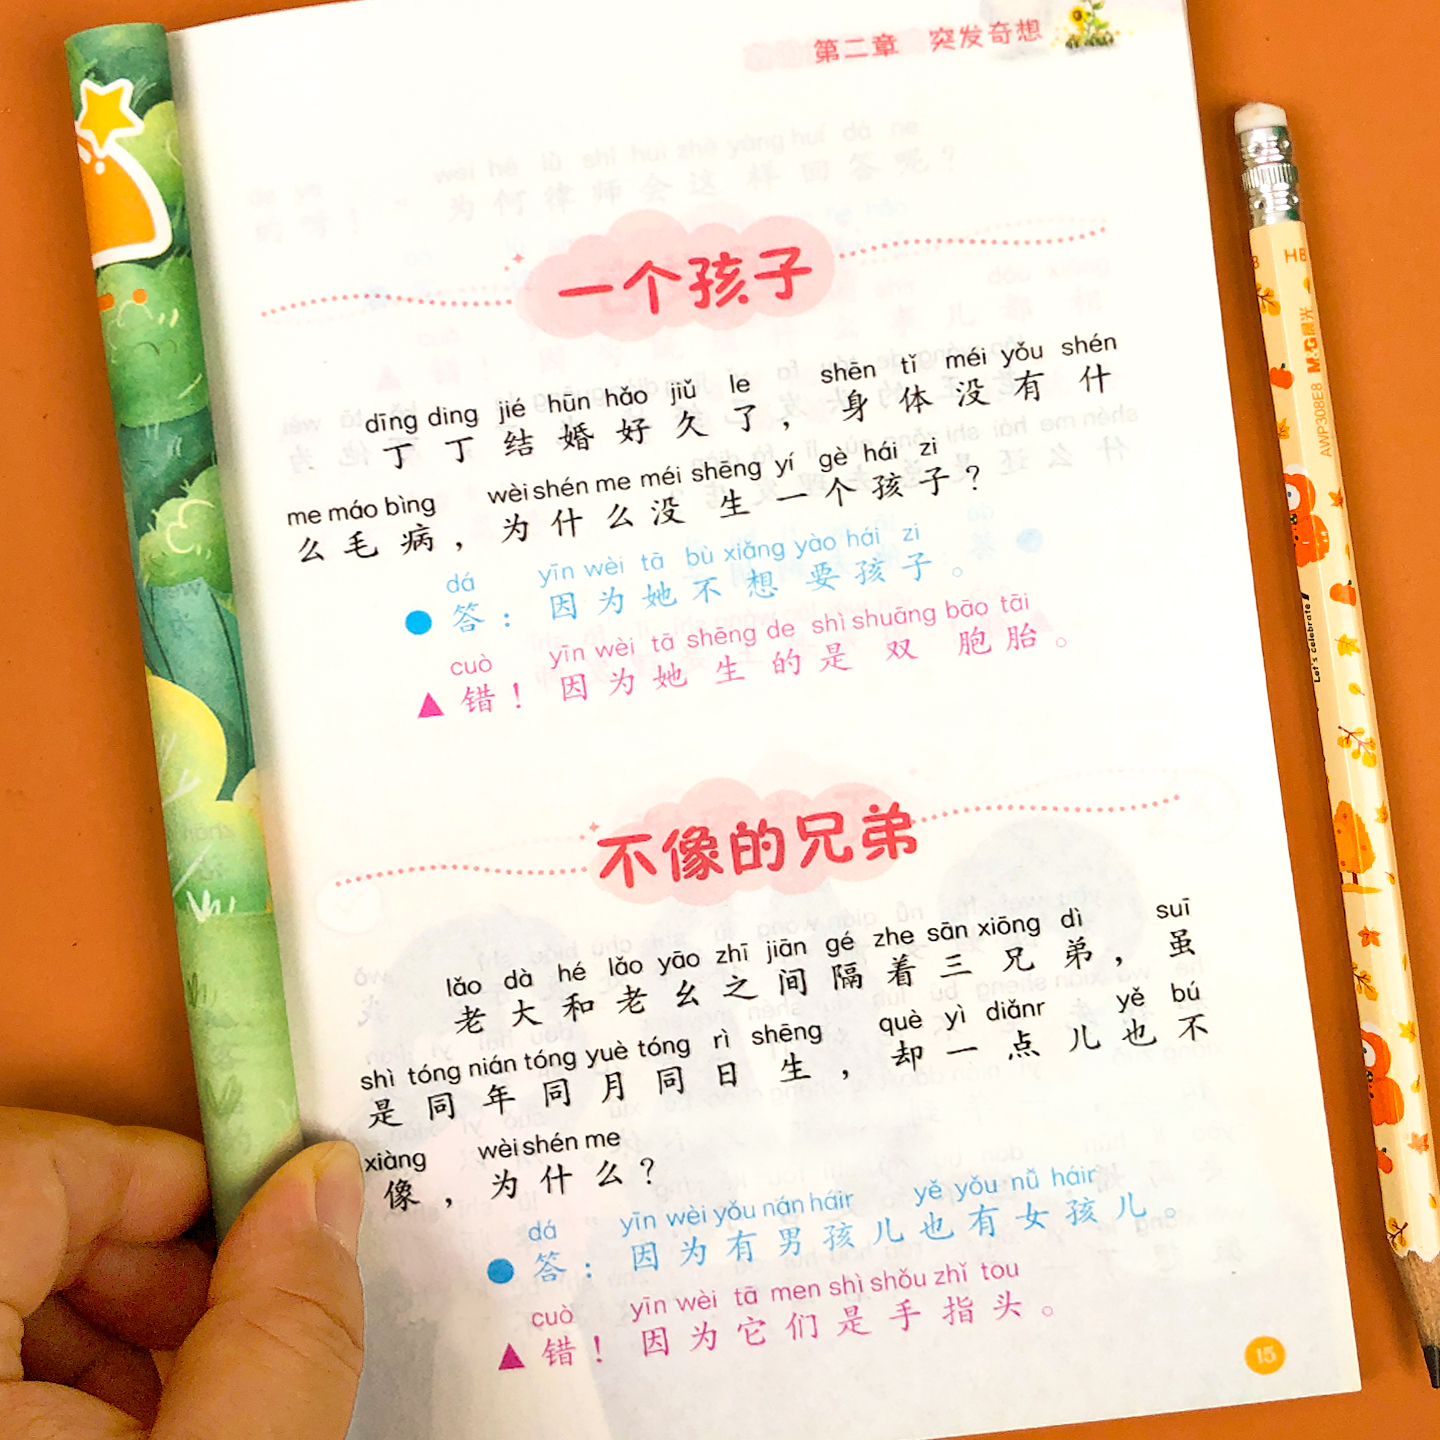 第二章 突发奇想
一个孩子
dīng ding jié hūn hǎo jiǔ le shēn tǐ méi yǒu shén
丁丁结婚好久了，身体没有什
me máo bìng wèi shén me méi shēng yí gè hái zi
么毛病，为什么没生一个孩子？
dá yīn wèi tā bù xiǎng yào hái zi
答：因为她不想要孩子。
cuò yīn wèi tā shēng de shì shuāng bāo tāi
错！因为她生的是双胞胎。
不像的兄弟
lǎo dà hé lǎo yāo zhī jiān gé zhe sān xiōng dì suī
老大和老幺之间隔着三兄弟，虽
shì tóng nián tóng yuè tóng rì shēng què yì diǎnr yě bú
是同年同月同日生，却一点儿也不
xiàng wèi shén me
像，为什么？
dá yīn wèi yǒu nán háir yě yǒu nǚ háir
答：因为有男孩儿也有女孩儿。
cuò yīn wèi tā men shì shǒu zhǐ tou
错！因为它们是手指头。
15
HB
M&G晨光
AWP308E8
Let's celebrate!